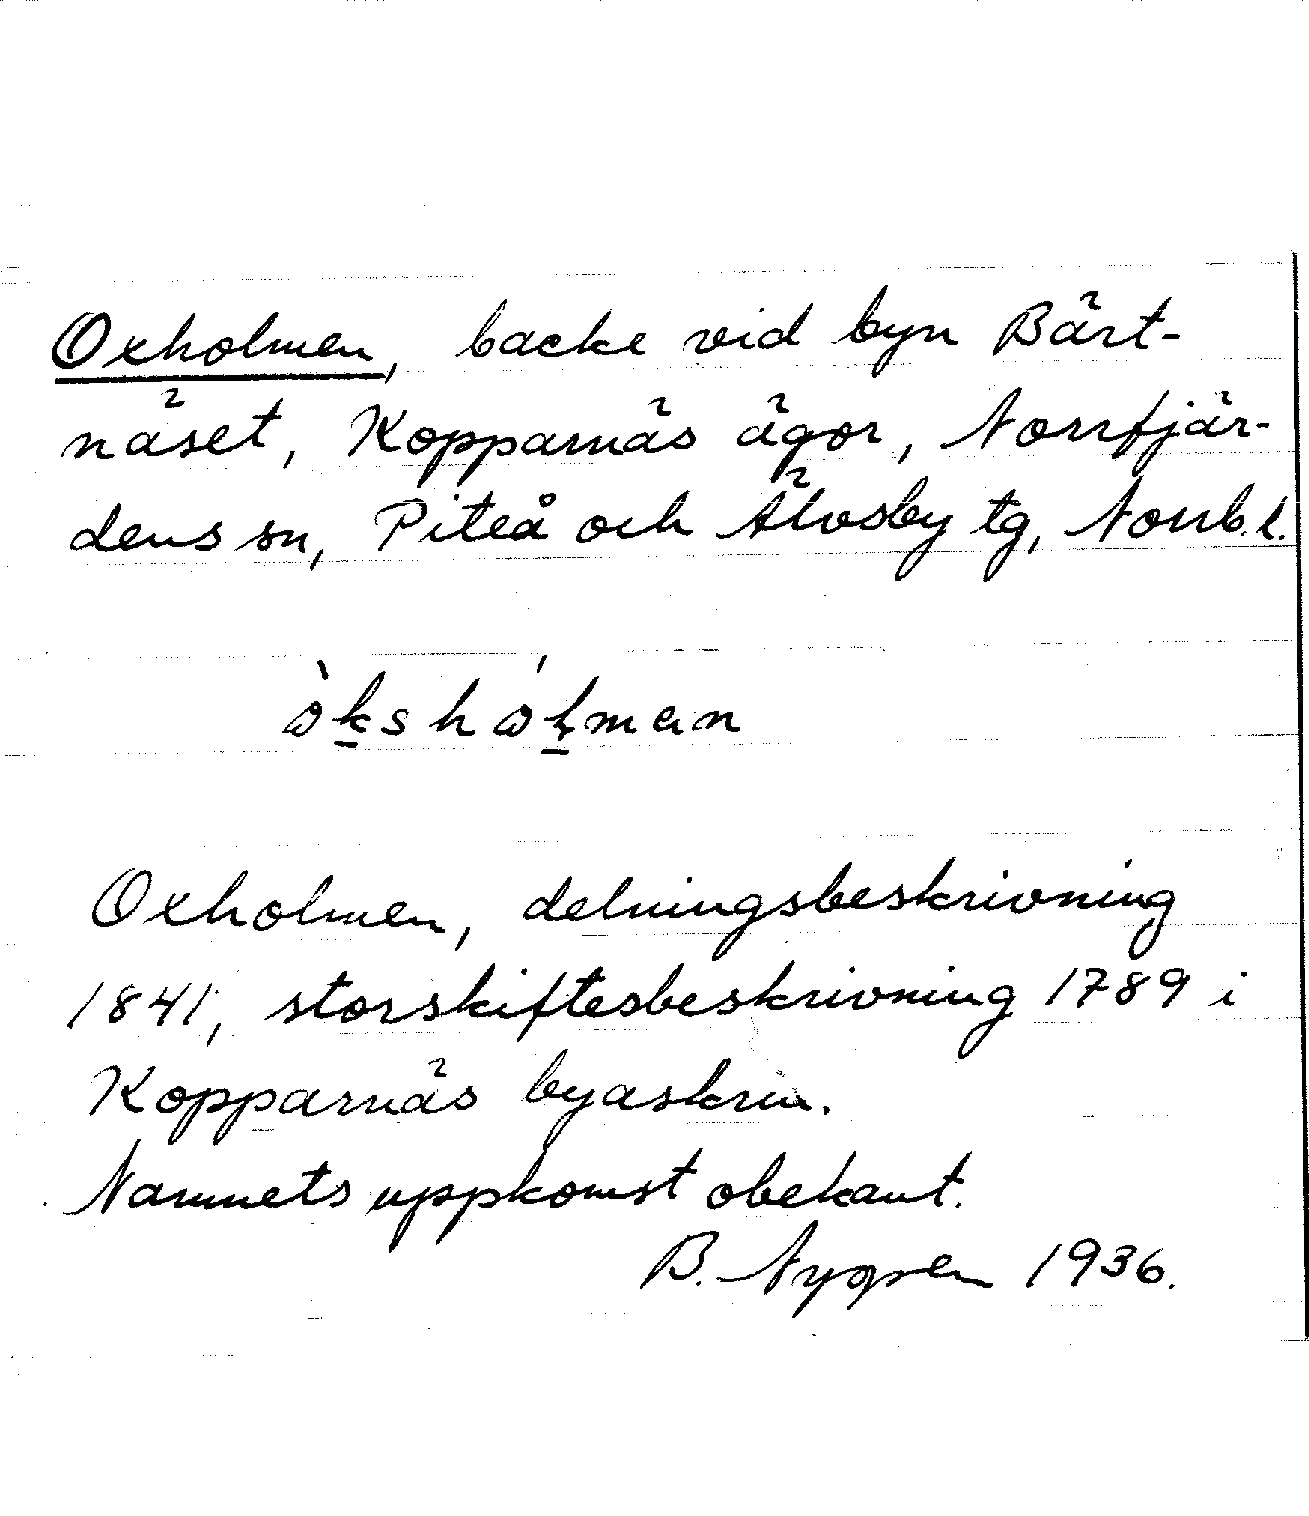 Oxholmen, backe vid byn Bärt-
näset, Kopparnäs ägor, Norrfjär-
dens sn, Piteå och Älvsby tg, Norrb. l.
Oxholmen, delningsbeskrivning
1841, storskiftesbeskrivning 1789 i
Kopparnäs byaskrin.
Namnets uppkomst obekant.
B. Nygren 1936.